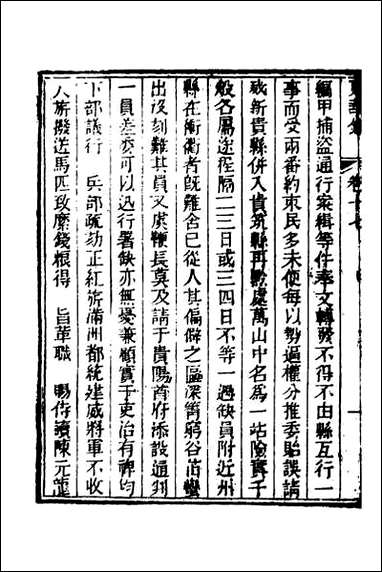 編甲捕盜通行案緝等件奉文轉發不得不由縣互行一
事而受兩番約束民多未便每以勢逼權分推委貽誤請
裁新貴縣併入貴筑縣再黔處萬山中名為一站險實千
般各屬途程隔二三日或三四日不等一遇缺員附近州
縣在衝衢者既難舍已從人其偏僻之區深箐窮谷苗蠻
出沒刻難其員又虞鞭長莫及請于貴陽首府添設通判
一員差委可以迅行署缺亦無憂兼顧實于吏治有裨均
下部議行　兵部疏劾正紅旂滿洲都統建威將軍不收
人旂撥送馬匹致糜錢糧得　旨革職　賜侍讀陳元龍
卷十七